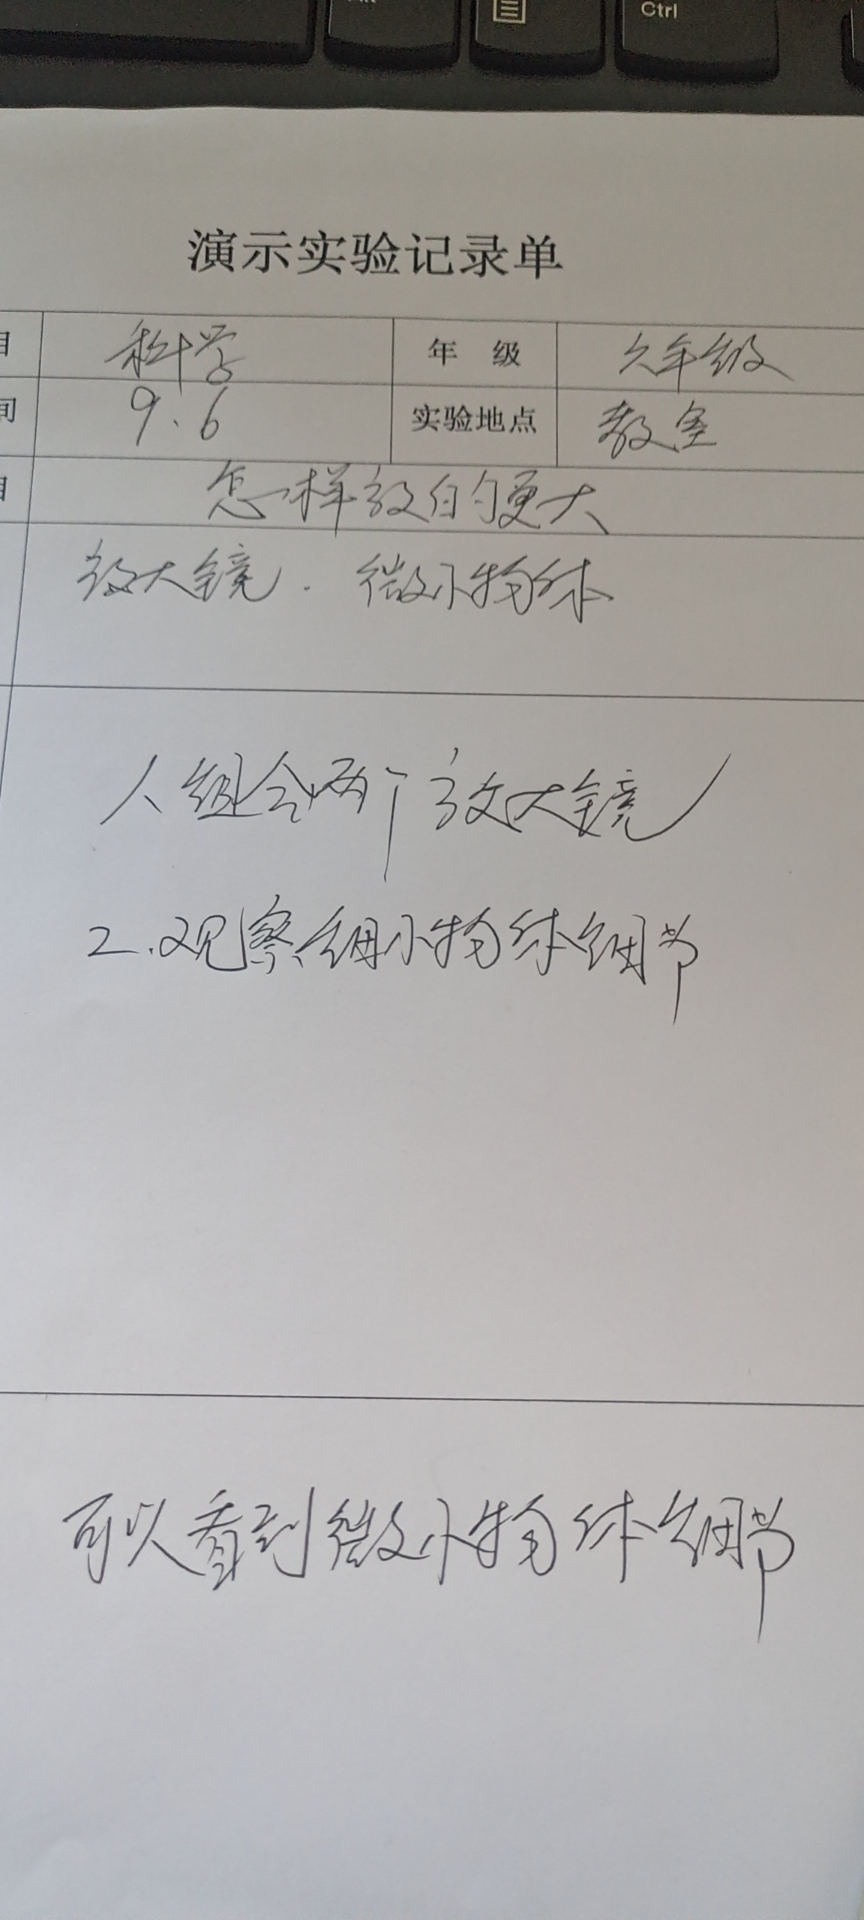 Ctrl
演示实验记录单
目 科学 年 级 六年级
间 9.6 实验地点 教室
目 怎样放的更大
放大镜. 微小物体
1.组合两个放大镜
2.观察细小物体细节
可以看到微小物体细节